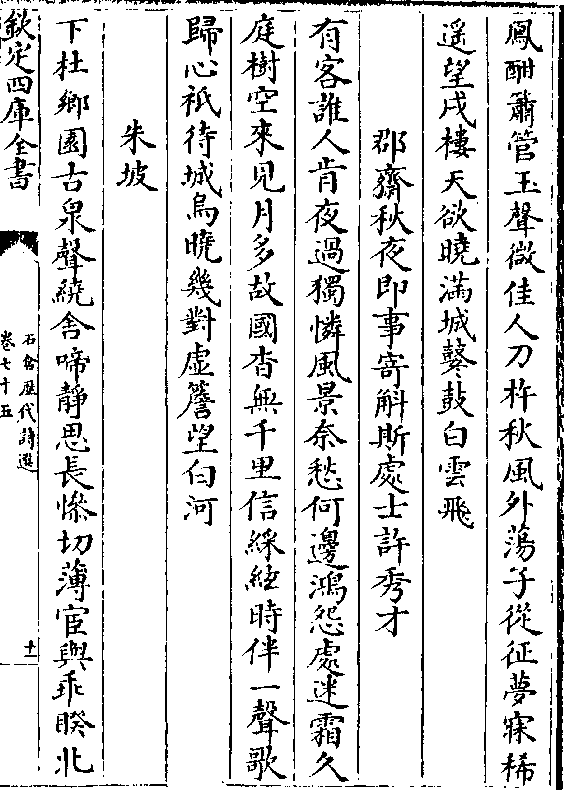 鳳酣簫管玉聲微佳人刀杵秋風外蕩子從征夢寐稀
遥望戍樓天欲曉滿城鼕鼓白雲飛
郡齋秋夜即事寄斛斯處士許秀才
有客誰人肯夜過獨憐風景奈愁何邊鴻怨處迷霜久
庭樹空來見月多故國杳無千里信綵絃時伴一聲歌
歸心祇待城烏曉幾對虛簷望白河
朱坡
下杜鄉園古泉聲繞舍啼靜思長慘切薄宦與乖睽北
欽定四庫全書
石倉歴代詩選
卷七十五
十一